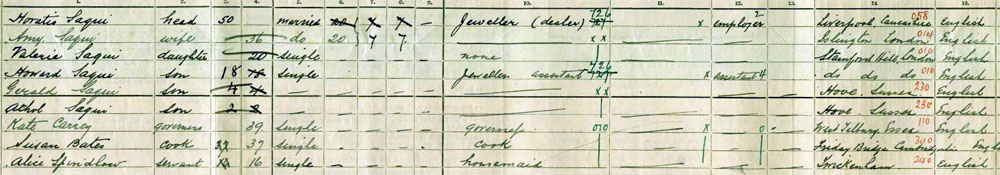 Horatio Saqui head 50 married Jeweller (dealer) 726 x employer 2 Liverpool Lancashire 058 English
Amy Saqui wife 36 do 20 7 7 x x Islington London 010 English
Valerie Saqui daughter 20 single none Stamford Hill London 010 English
Howard Saqui son 18 single Jewellers assistant 726 x assistant 4 do do do 010 English
Gerald Saqui son 4 x x Hove Sussex 230 English
Athol Saqui son 2 Hove Sussex 230 English
Kate Carrey governess 39 single governess 010 x 0 West Tilbury Essex 110 English
Susan Bates cook 37 37 single cook Friday Bridge 390
Alice Spindlow servant 16 single housemaid Twickenham 240 English